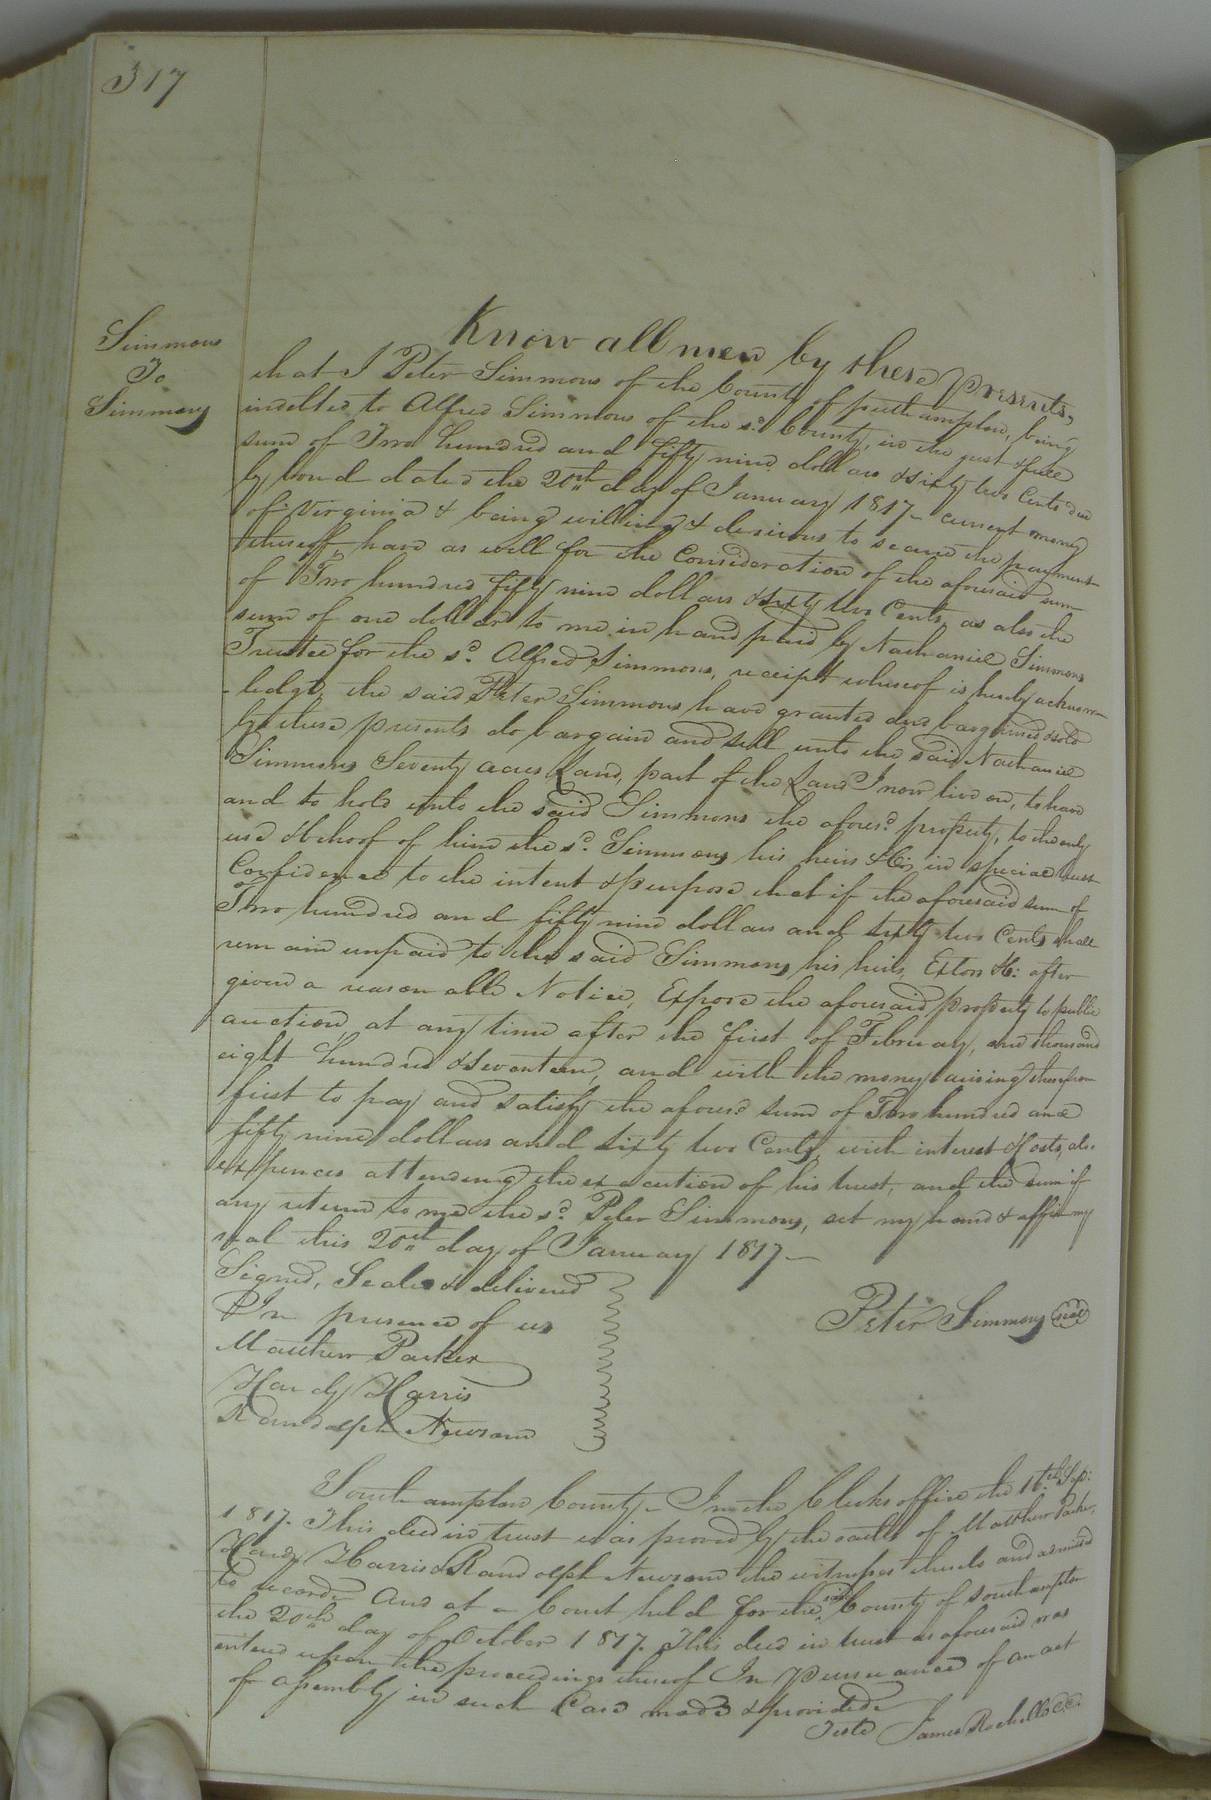 317
Simmons
To
Simmons
Know all men by these presents,
that I Peter Simmons of the County of southampton, being
indebted to Alfred Simmons of the sd. County, in the just & full
sum of Two hundred and fifty nine dollars & sixty two Cents due
by bond dated the 20th day of January 1817 current money
of Virginia & being willing & desirous to secure the payment
thereof, have as well for the Consideration of the aforesaid sum
of Two hundred fifty nine dollars & sixty two Cents, as also the
sum of one dollar to me in hand paid by Nathaniel Simmons
Trustee for the sd. Alfred Simmons, receipt whereof is hereby acknow
-ledgd, the said Peter Simmons have granted and bargained & sold
by these presents do bargain and sell unto the said Nathaniel
Simmons Seventy acres Land, part of the Land I now live on, to have
and to hold unto the said Simmons the aforesd. property, to the only
use & behoof of him the sd. Simmons his heirs &C, in special trust
Confidence to the intent & purpose that if the aforesaid sum of
Two hundred and fifty nine dollars and sixty two Cents shall
remain unpaid to the said Simmons his heirs, Extors &: after
given a reasonable Notice, Expose the aforesaid property to public
auction at any time after the first of February, one thousand
eight hundred & seventeen, and with the money arising therefrom
first to pay and satisfy the aforesd sum of Two hundred and
fifty nine dollars and sixty two Cents, with interest & Costs, also
expences attending the execution of his trust, and the sum if
any return to me the sd. Peter Simmons, set my hand & affix my
seal this 20th day of January 1817
Signed, Sealed & delivered
In presence of us
Matthew Parker
Hardy Harris
Randolph Newsom
Peter Simmons seal
Southampton County - In the Clerks office the 16th Sep:
1817. This deed in trust was proved by the oaths of Matthew Parker,
Hardy Harris & Randolph Newsom the witnesses thereto and admitted
to record. And at a Court held for the said County of southampton
the 20th day of October 1817. This deed in trust as aforesaid was
entered upon the proceedings thereof In Pursuance of an act
of assembly in such Case made & provided
Teste James Rochelle C.C.